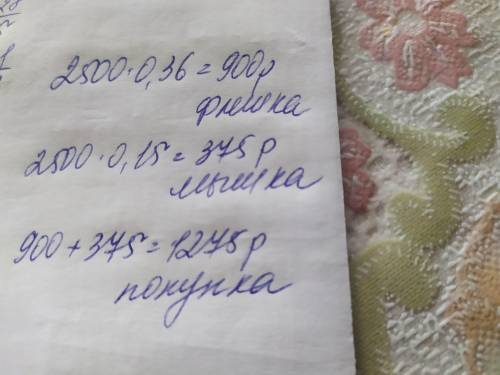 2500·0,36=900р
флешка
2500·0,15=375р
мышка
900+375=1275р
покупка